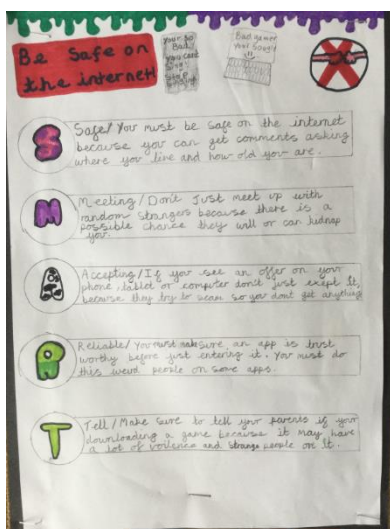 Be Safe on
the internet!
your so
Bad
you cant
Bad gamer
S
Safe/You must be safe on the internet
because you can get comments asking
where you live and how old you are.
M
Meeting/Don't Just meet up with
random strangers because there is a
possible chance they will or can kidnap
you.
A
Accepting/If you see an offer on your
phone, tablet or computer don't just exept It,
because they try to scam so you dont get anything
R
Reliable/You must make sure an app is trust
worthy before just entering it. You must do
this weird people on some apps.
T
Tell/Make sure to tell your parents if your
downloading a game because it may have
a lot of violence and strange people on It.